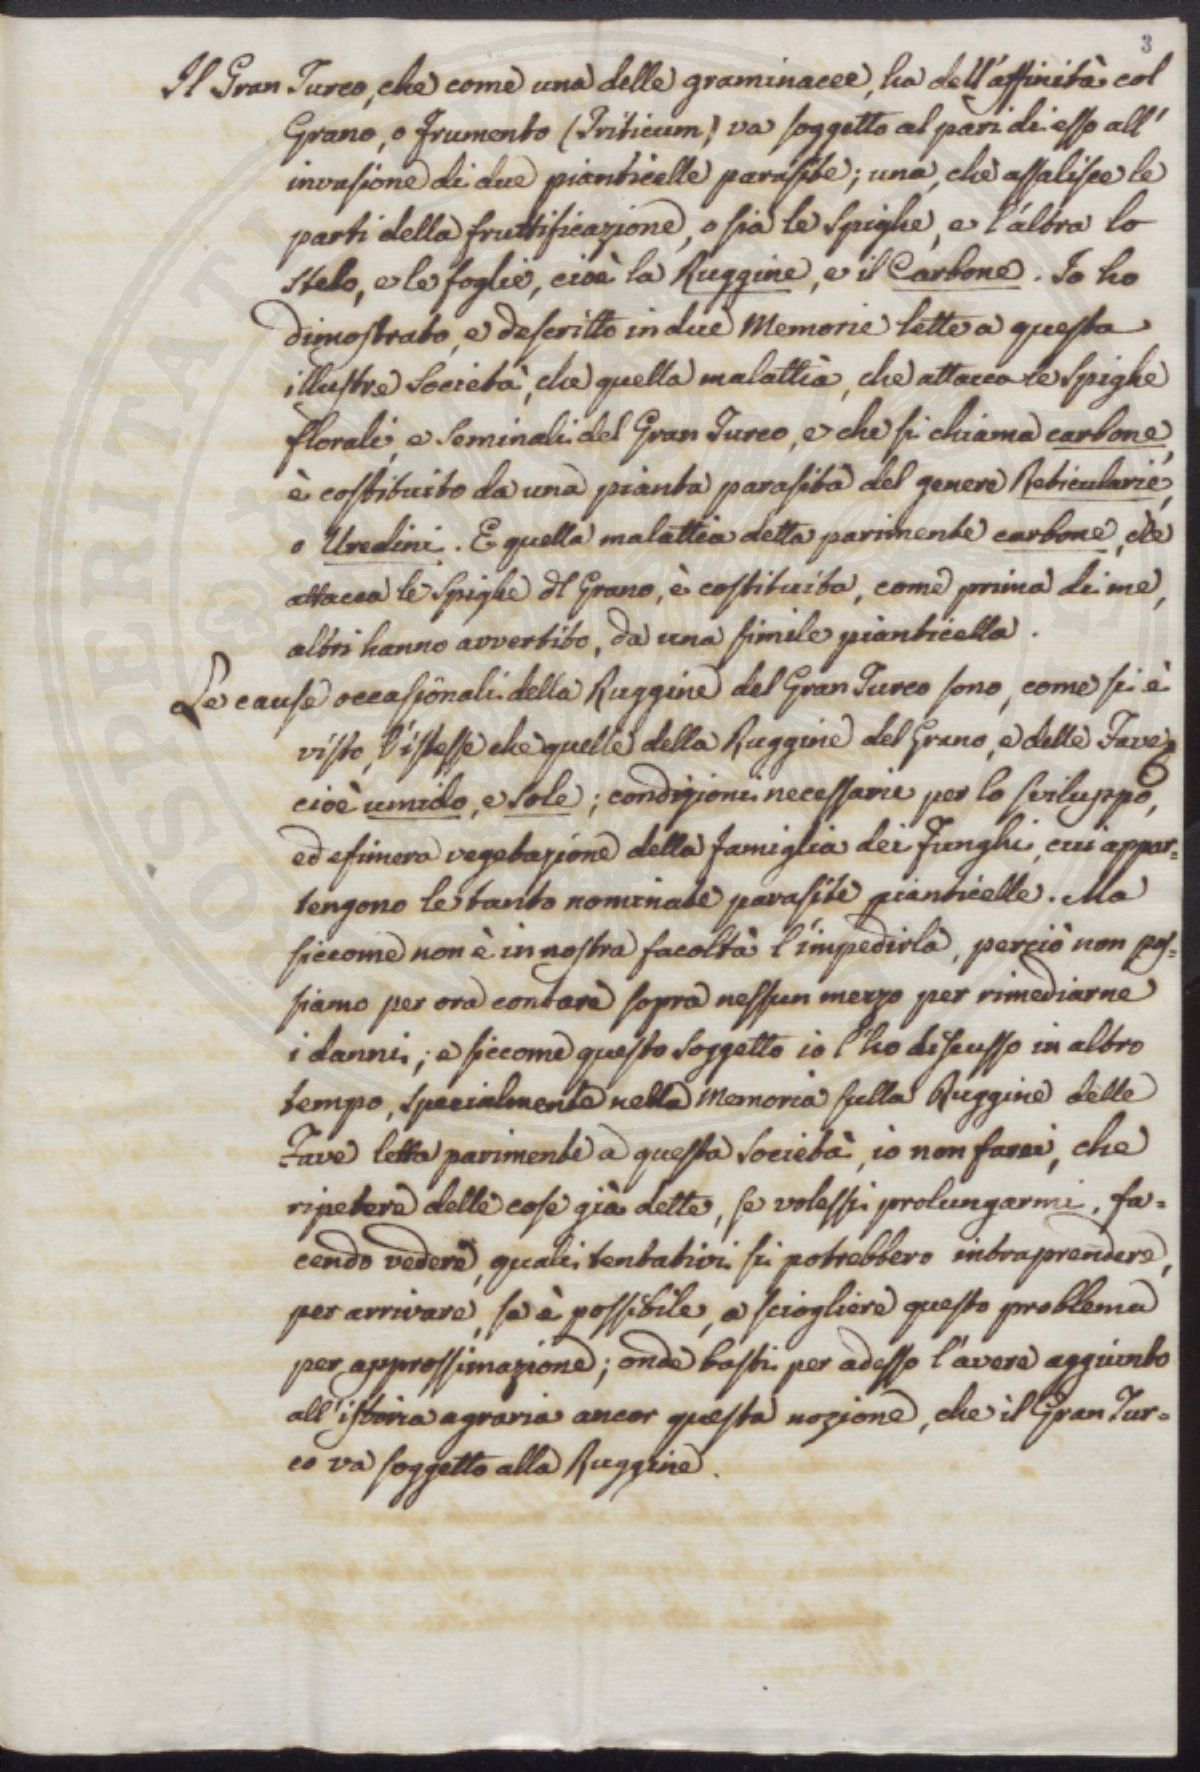 3
Il Gran Turco, che come una delle graminacee, ha dell'affinità col
Grano, o frumento (Triticum) va soggetto al pari di esso all'
invasione di due pianticelle parasite; una, che assalisce le
parti della fruttificazione, o sia le Spighe, e l'altra lo
stelo, e le foglie, cioè la Ruggine, e il Carbone. Io ho
dimostrato, e descritto in due Memorie lette a questa
illustre Società, che quella malattia, che attacca le Spighe
florali, e Seminali del Gran Turco, e che si chiama carbone,
è costituito da una pianta parasita del genere Reticularie,
o Uredini. E quella malattia detta parimente carbone, che
attacca le Spighe dl Grano, è costituita, come prima di me,
altri hanno avvertito, da una simile pianticella.
Le cause occasionali della Ruggine del Gran Turco sono, come si è
visto, l'istesse che quelle della Ruggine del Grano, e delle Fave,
cioè umido, e sole; condizioni necessarie per lo sviluppo,
ed efimera vegetazione della famiglia dei Funghi, cui appar=
tengono le tanto nominate parasite pianticelle. Ma
siccome non è in nostra facoltà l'impedirla, perciò non pos=
siamo per ora contare sopra nessun mezzo per rimediarne
i danni; e siccome questo soggetto io l'ho discusso in altro
tempo, specialmente nella Memoria sulla Ruggine delle
Fave letta parimente a questa Società, io non farei, che
ripetere delle cose già dette, se volessi prolungarmi, fa=
cendo vedere, quali tentativi si potrebbero intraprendere,
per arrivare, se è possibile, a sciogliere questo problema
per approssimazione; onde basti per adesso l'avere aggiunto
all'istoria agraria ancor questa nozione, che il Gran Tur=
co va soggetto alla Ruggine.